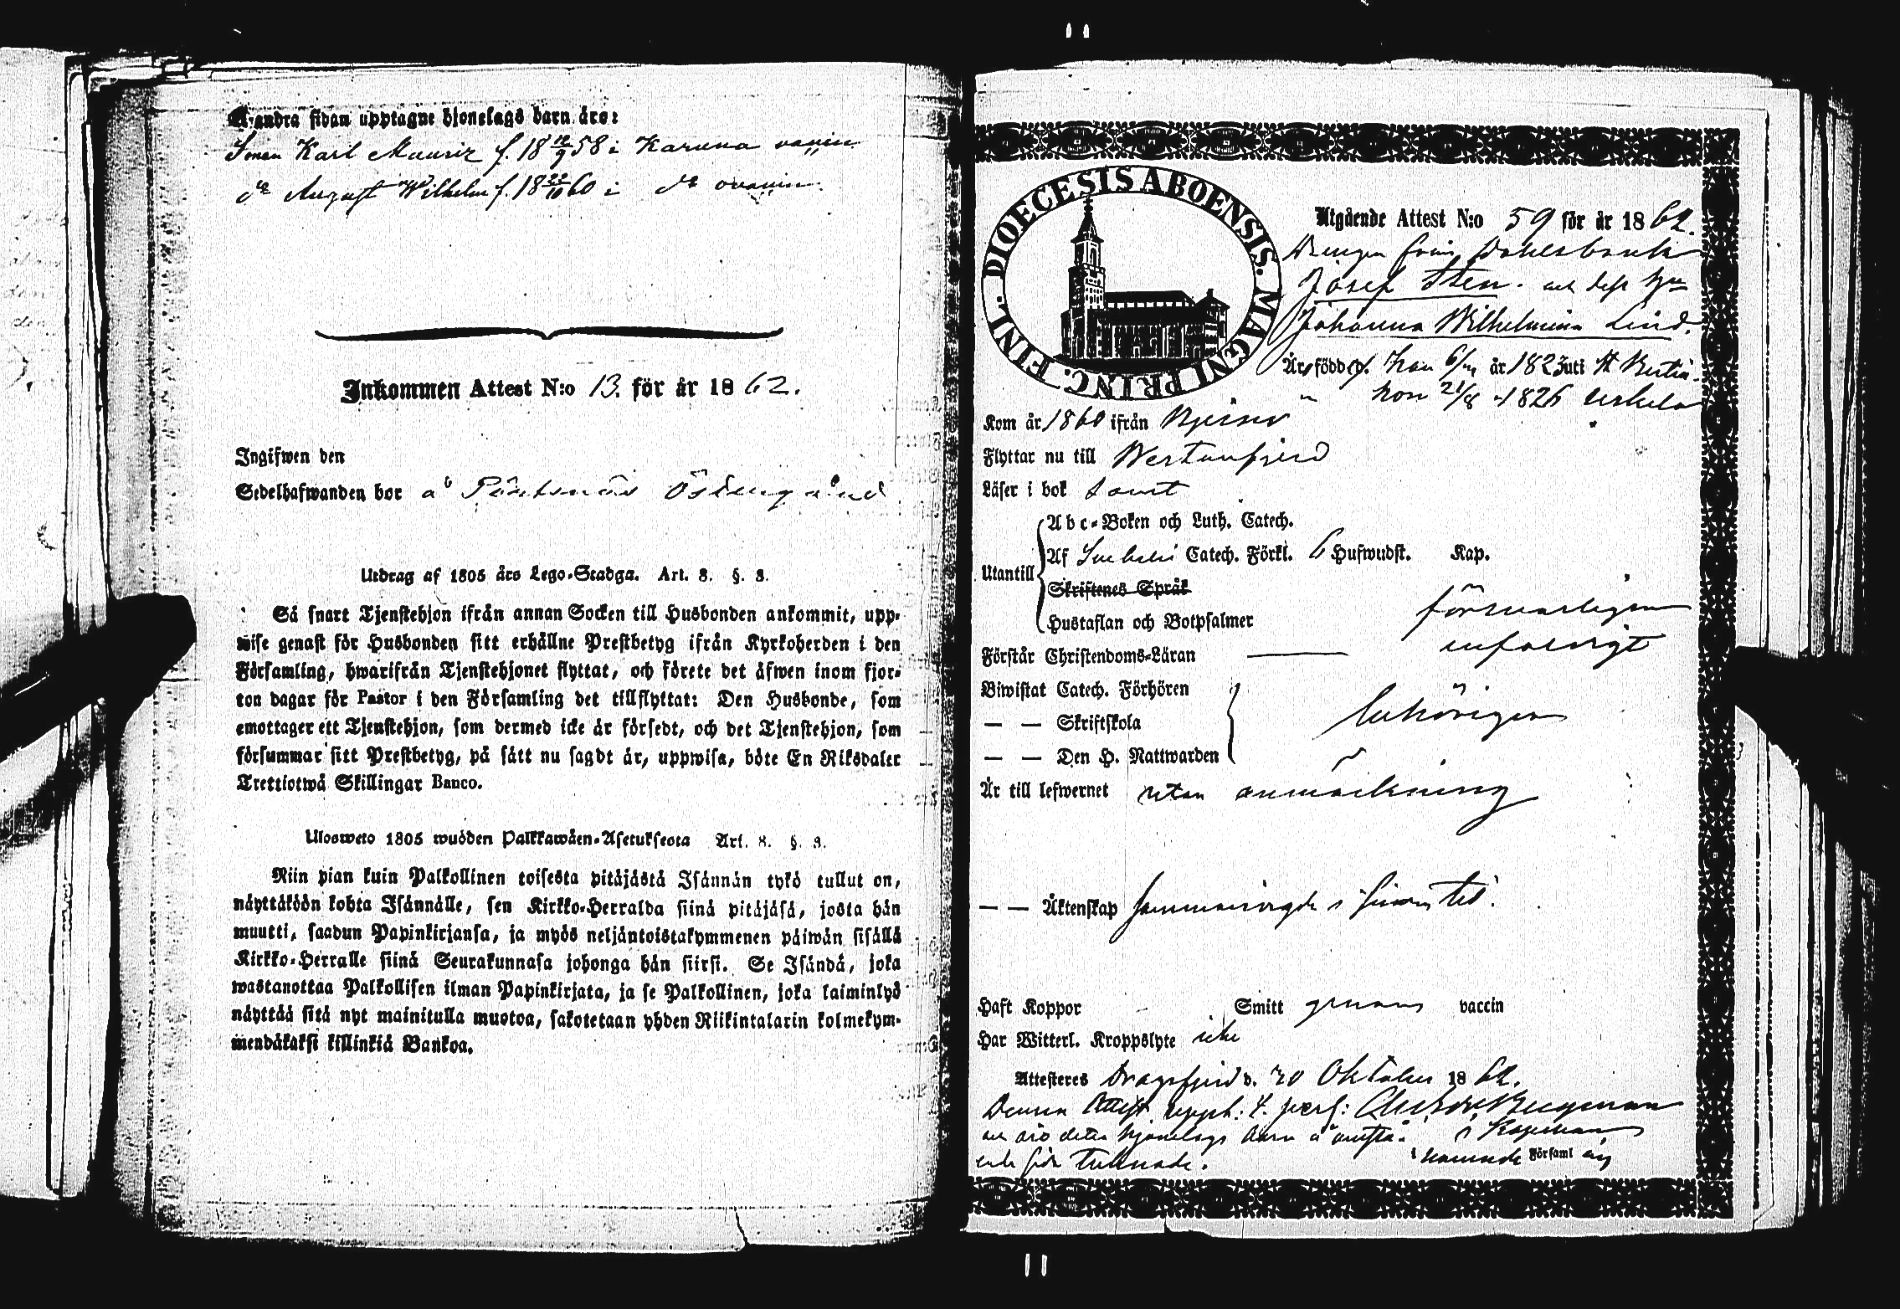 Å andra sidan upptagne hjonelags barn äro:
Sonen Karl Mauriz f. 18 12/9 58 i Karuna
do August Wilhelm f. 18 22/10 60 i do
Inkommen Attest N:o 13. för år 1862.
Ingifwen den
Sedelhafwanden bor å Östergård
Utdrag af 1805 års Lego-Stadga. Art. 8. §. 3.
Så snart Tjenstehjon ifrån annan Socken till Husbonden ankommit, upp-
wise genast för Husbonden sitt erhållne Prestbetyg ifrån Kyrkoherden i den
Församling, hwarifrån Tjenstehjonet flyttat, och förete det äfwen inom fjor-
ton dagar för Pastor i den Församling det tillflyttat: Den Husbonde, som
emottager ett Tjenstehjon, som dermed icke är försedt, och det Tjenstehjon, som
försummar sitt Prestbetyg, på sätt nu sagdt är, uppwisa, böte En Riksdaler
Trettiotwå Skillingar Banco.
Ulosweto 1805 wuoden Palkkawäen-Asetuksesta Art. 8. §. 3.
Niin pian kuin Palkollinen toisesta pitäjästä Isännän tykö tullut on,
näyttäköön kohta Isännälle, sen Kirkko-Herralda siinä pitäjäsä, josta hän
muutti, saadun Papinkirjansa, ja myös neljäntoistakymmenen päiwän sisällä
Kirkko-Herralle siinä Seurakunnasa johonga hän siirsi. Se Isändä, joka
wastanottaa Palkollisen ilman Papinkirjata, ja se Palkollinen, joka laiminlyö
näyttää sitä nyt mainitulla muotoa, sakotetaan yhden Riikintalarin kolmekym-
mendäkaksi killinkiä Bankoa.
FINL. DIOECESIS ABOENSIS. MAGNI PRINC.
Utgående Attest N:o 59 för år 1862.
Drengen från Dahlsbruk
Josef Sten. och dess hu
Johanna Wilhelmina Lind.
Äro född e d. han 6/ år 1823 uti St Bertils
" hon 21/8 " 1826
Kom år 1860 ifrån Bjerno
Flyttar nu till Westanfjerd
Läser i bok samt
Utantill
Abc-Boken och Luth. Catech.
Af Svebelii Catech. Förkl. 6 Hufwudst. Kap.
Skriftenes Språk
Hustaflan och Botpsalmer
försvarligen
Förstår Christendoms-Läran enfaldigt
Biwistat Catech. Förhören
— — Skriftskola behörigen
— — Den H. Nattwarden
Är till lefwernet utan anmärkning
— — Äktenskap sammanvigde i sinom tid.
Haft Koppor Smitt genom vaccin
Har Witterl. Kroppslyte icke
Attesteres Dragsfjerd d. 20 Oktober 1862.
Denna Attest uppt: 4. pers: Bergman
och äro detta hjonelags barn å motstå- Kapellan
ende sida tecknade. i nämnde Församl ing